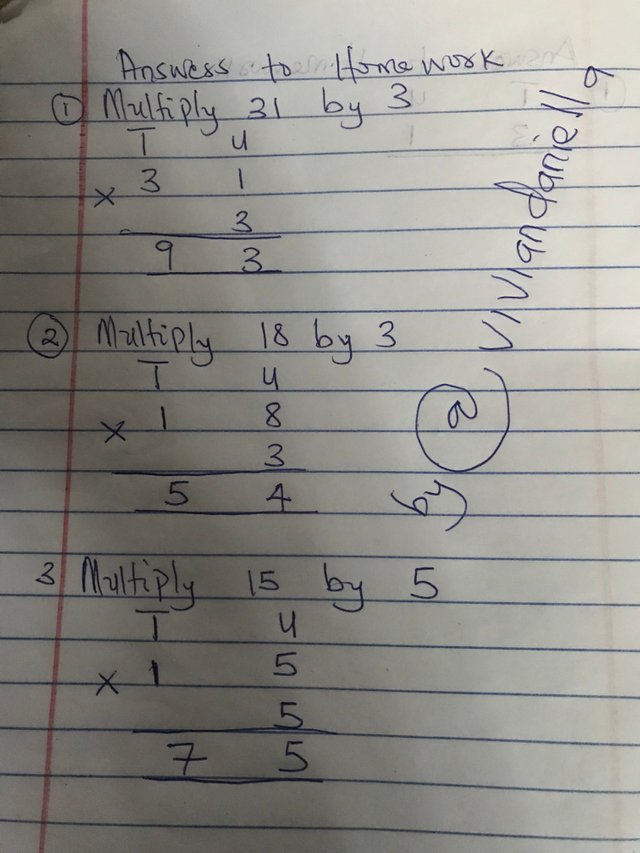 Answess to Home work
① Multiply 31 by 3
T U
× 3 1
3
9 3
② Multiply 18 by 3
T U
× 1 8
3
5 4
3 Multiply 15 by 5
T U
× 1 5
5
7 5
by @viviandaniella